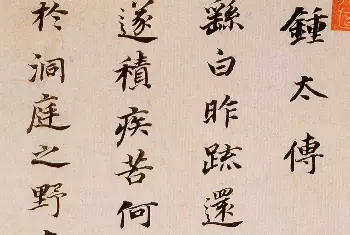 鍾太傅
繇白昨疏還
遂積疾苦何
於洞庭之野